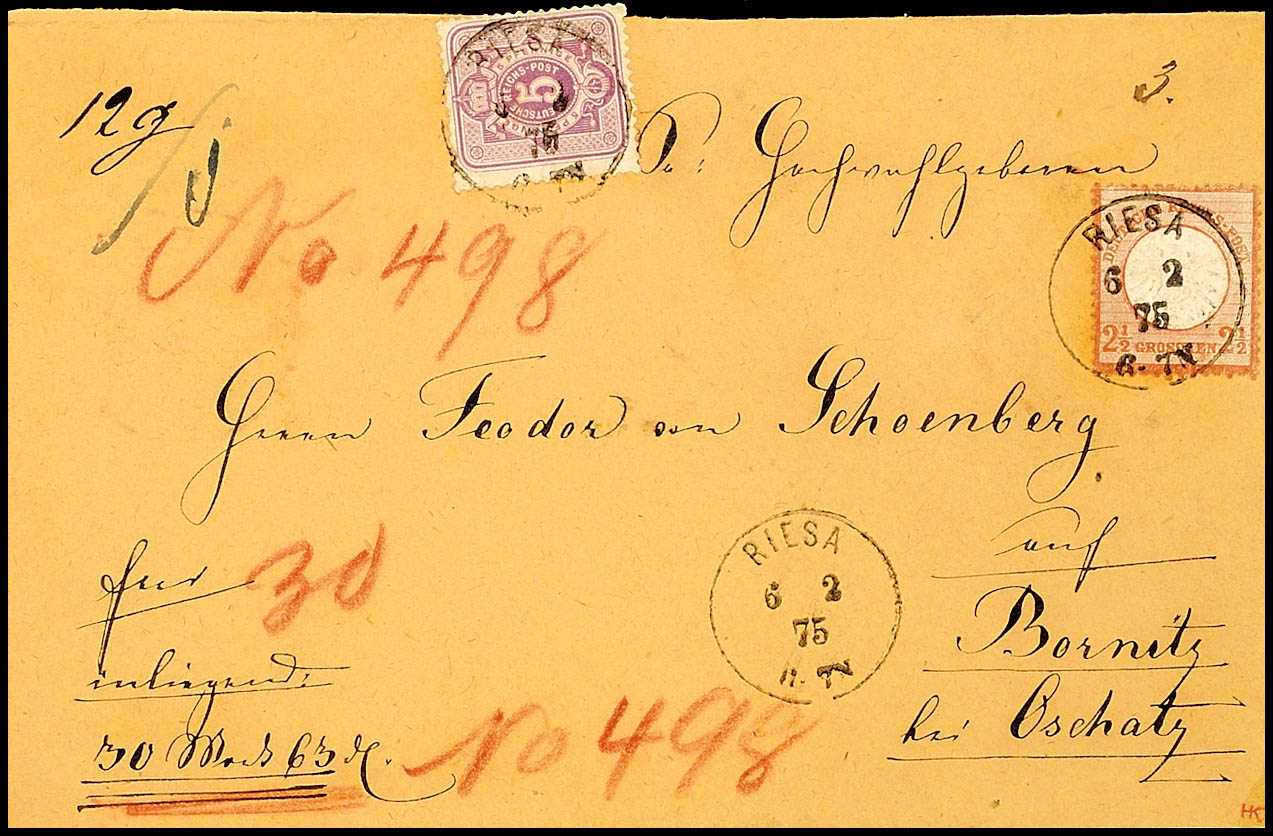 12g
3.
RIESA
5 PFENNIGE
DEUTSCHE REICHS-POST
5
Sr: Hochwohlgeboren
No 498
DEUTSCHE REICHS-POST
2½ GROSCHEN 2½
RIESA
6 2
75
6-7N
Herrn Feodor von Schoenberg
auf
Bornitz
bei Oschatz
RIESA
6 2
75
6-7N
frei 30
inliegend:
30 Mark 63 d.
No 498
HK